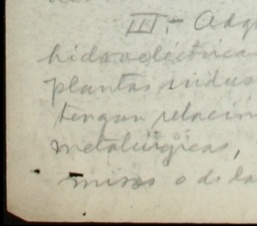 III.- Adq
hidroeléctricas
plantas indus
tengan relación
metalúrgicas,
mixos o de la